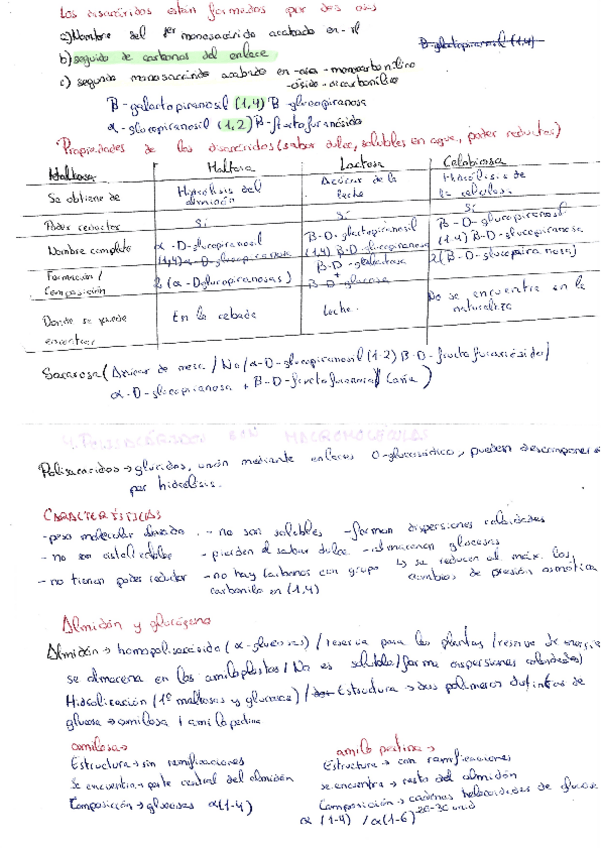 Los disacáridos están formados por dos
a) Nombre del 1er monosacárido acabado en -il
b) seguido de carbonos del enlace
c) segundo monosacárido acabado en -osa - monocarbonílico
-ósido - dicarbonílico
B-galactopiranosil (1,4)
B-galactopiranosil (1,4) B-glucopiranosa
α-glucopiranosil (1,2) B-fructofuranósido
Propiedades de los disacáridos (sabor dulce, solubles en agua, poder reductor)
Maltosa Lactosa Celobiosa
Se obtiene de Hidrólisis del almidón Azúcar de la leche Hidrólisis de la celulosa
Poder reductor Sí Sí Sí
Nombre completo α-D-glucopiranosil (1,4) α-D-glucopiranosa B-D-galactopiranosil (1,4) B-D-glucopiranosa B-D-glucopiranosil (1-4) B-D-glucopiranosa
Formación / Composición 2 (α-D glucopiranosas) B-D-galactosa + B-D-glucosa 2 (B-D-glucopiranosa)
Donde se puede encontrar En la cebada Leche. No se encuentra en la naturaleza
Sacarosa (Azúcar de mesa / No / α-D-glucopiranosil (1-2) B-D-fructofuranósido /
α-D-glucopiranosa + B-D-fructofuranosa / Caña)
4. POLISACÁRIDOS SON MACROMOLÉCULAS
Polisacáridos → glúcidos, unión mediante enlaces O-glucosídico, pueden descomponerse
por hidrólisis.
CARACTERÍSTICAS
- peso molecular elevado. - no son solubles - forman dispersiones coloidales
- no son cristalizables - pierden el sabor dulce - almacenan glucosas
- no tienen poder reductor - no hay carbonos con grupo carbonilo en (1,4) ↳ se reducen al máx. los cambios de presión osmótica
Almidón y glucógeno
Almidón → homopolisacárido (α-glucosas) / reserva para las plantas / reserva de energía
se almacena en los amiloplastos / No es soluble / forma dispersiones coloidales)
Hidrolización (1º maltosas y glucosas) / Estructura → dos polímeros distintos de
glucosa → amilosa y amilopectina
amilosa →
Estructura → sin ramificaciones
se encuentra → parte central del almidón
Composición → glucosas α(1-4)
amilopectina →
Estructura → con ramificaciones
se encuentra → resto del almidón
Composición → cadenas helicoidales de glucosa
α (1-4) / α(1-6)